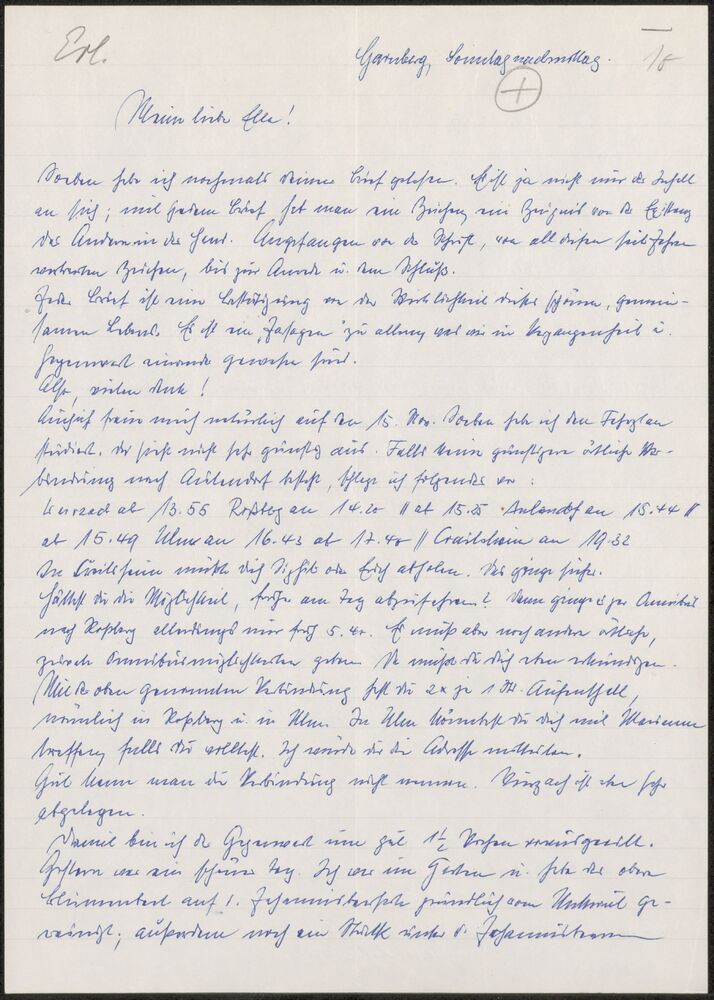 Erl.
Gaimberg, Sonntagnachmittag. 1/8
Meine liebe Elle!
Soeben habe ich nochmals Deinen Brief gelesen. Es ist ja nicht nur der Inhalt
an sich; mit jedem Brief hat man ein Zeichen, ein Zeugnis von der Existenz
des Anderen in der Hand. Angefangen von der Schrift, von all diesen seit Jahren
vertrauten Zeichen, bis zur Anrede u. dem Schluß.
Jeder Brief ist eine Bestätigung von der Wirklichkeit dieses schönen, gemein-
samen Lebens. Es ist ein „Jasagen" zu allem, was wir in Vergangenheit u.
Gegenwart einander gewesen sind.
Also, vielen Dank!
auch ich freue mich natürlich auf den 15. Nov. Soeben habe ich den Fahrplan
studiert. Der sieht nicht sehr günstig aus. Falls keine günstigere örtliche Ver-
bindung nach Aulendorf besteht, schlage ich folgendes vor:
ab 13.55 Roßberg an 14.20 // ab 15.25 Aulendorf an 15.44 //
ab 15.49 Ulm an 16.43 ab 17.40 // Crailsheim an 19.32
In Crailsheim müßte Dich oder Erich abholen. Das ginge sicher.
Hättest Du die Möglichkeit, früher am Tag abzufahren? Dann ginge es per Omnibus
nach Roßberg allerdings nur früh 5.40. Es muß aber noch andere örtliche,
private Omnibusmöglichkeiten geben. Da müßtest Du Dich eben erkundigen.
Mit der oben genannten Verbindung hast Du 2x je 1 Std. Aufenthalt,
nämlich in Roßberg u. in Ulm. In Ulm könntest Du Dich mit Marianne
treffen, falls Du wolltest. Ich würde dir die Adresse mitteilen.
Gut kann man die Verbindung nicht nennen. ist eben sehr
abgelegen.
Damit bin ich der Gegenwart um gut 1½ Wochen vorausgeeilt.
Gestern war ein schöner Tag. Ich war im Garten u. habe das obere
Blumenbeet auf 1. gründlich vom Unkraut ge-
reinigt; außerdem noch ein Stück unter d. Johannisbeeren